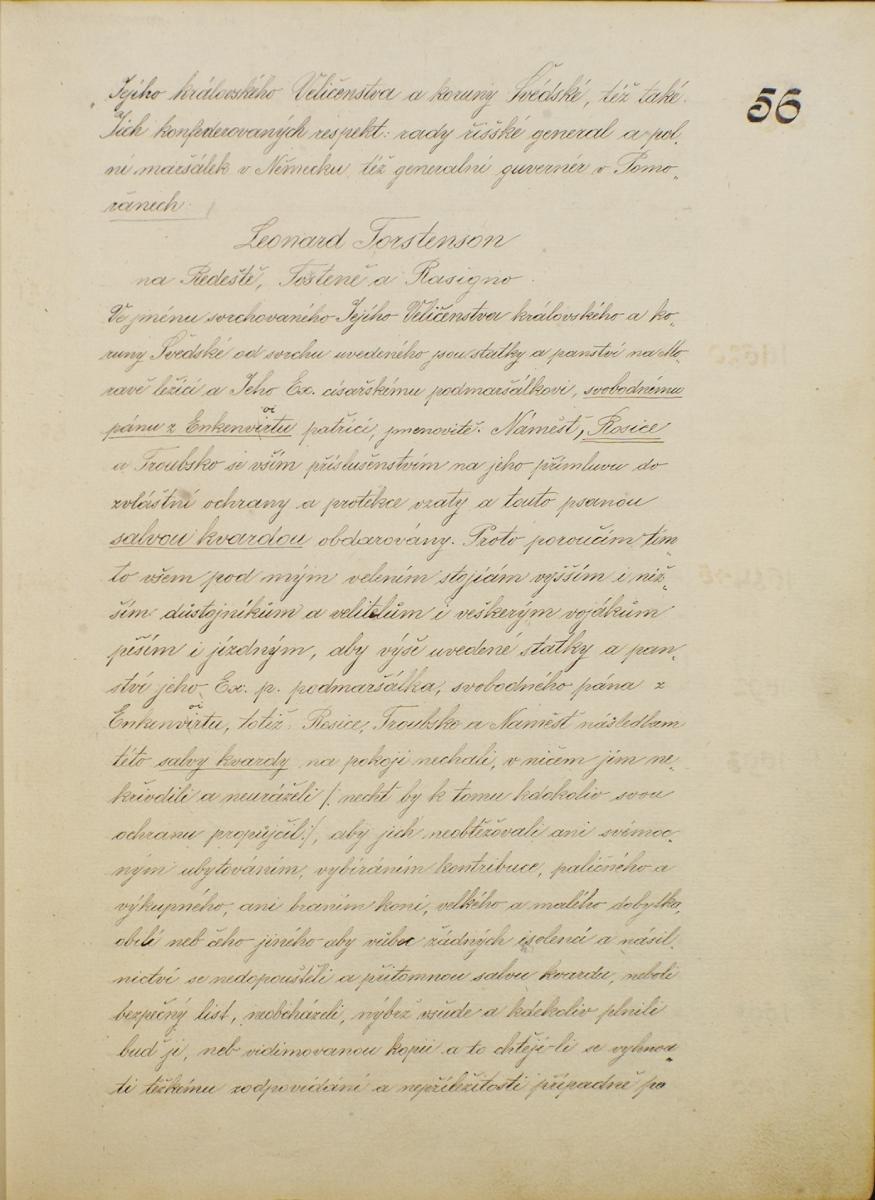 56
Jejího královského Veličenstva a koruny Švédské, též také
Jich konfederovaných respekt: rady říšské general a pol„
ní maršálek v Německu, též generalní guvernér v Pomo„
řanech.
Leonard Torstenson
na Redeště, Tosteně a Rasigno.
Ve jménu svrchovaného Jejího Veličenstva královského a ko„
runy Švédské od svrchu uvedeného jsou statky a panství na Mo„
ravě ležící a Jeho Ex. císařskému podmaršálkovi, svobodnému
oi
pánu z Enkenvirtu patřící, jmenovitě: Náměšť, Rosice
a Troubsko se vším příslušenstvím na jeho přímluvu do
zvláštní ochrany a protekce vzaty a touto psanou
salvou kvardou obdarovány. Proto poroučím tím„
to všem pod mým velením stojícím vyšším i niž„
ším důstojníkům a velitelům i veškerým vojákům
pěším i jízdným, aby výše uvedené statky a pan„
ství jeho Ex. p. podmaršálka, svobodného pána z
oi
Enkenvirtu, totiž: Rosice, Troubsko a Náměšť následkem
této salvy kvardy na pokoji nechali, v ničem jim ne„
křivdili a neuráželi /: nechť by k tomu kdokoliv svou
ochranu propůjčil:/, aby jich neobtěžovali ani svémoc„
ným ubytováním, vybíráním kontribuce, paličného a
výkupného, ani braním koní, velkého a malého dobytka,
obilí neb čeho jiného aby vůbec žádných isolencí a násil„
nictví se nedopouštěli a přítomnou salvu kvardu, neboli
bezpečný list, neobcházeli, nýbrž všude a kdekoliv plnili
buď ji, neb vidimovanou kopii a to chtějí-li se vyhnou„
ti těžkému zodpovídání a nepříležitosti případně po